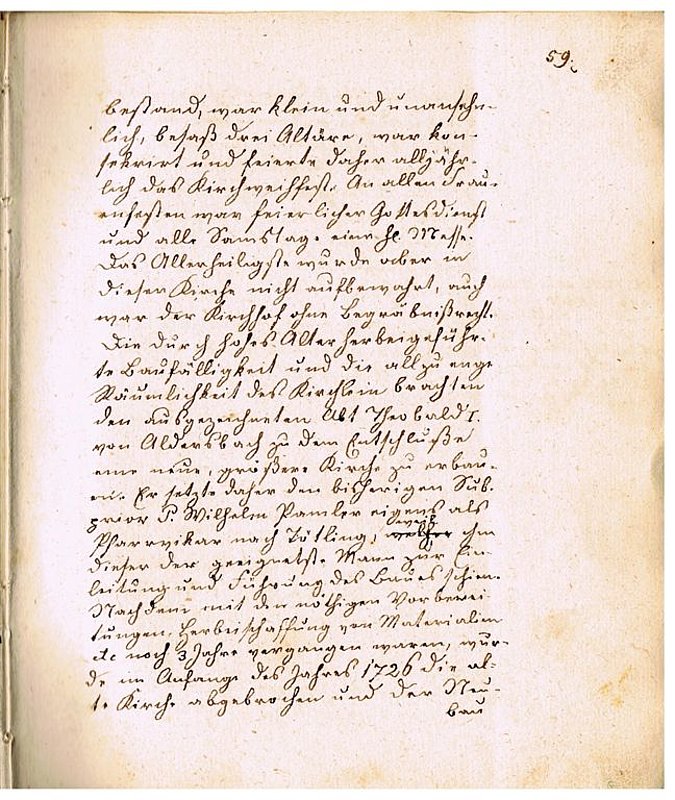 59.
bestand, war klein und unansehn-
lich, besaß drei Altäre, war kon-
sekrirt und feierte daher alljähr-
lich das Kirchweihfest. An allen Frau-
enfesten war feierlicher Gottesdienst
und alle Samstage eine hl. Messe.
Das Allerheiligste wurde aber in
dieser Kirche nicht aufbewahrt, auch
war der Kirchhof ohne Begräbnißrecht.
Die durch hohes Alter herbeigeführ-
te Baufälligkeit und die allzu enge
Räumlichkeit des Kirchlein brachten
den ausgezeichneten Abt Theobald I.
von Aldersbach zu dem Entschluße
eine neue, größere Kirche zu erbau-
en. Er setzte daher den bisherigen Sub-
prior P. Wilhelm Pamler eigens als
Pfarrvikar nach Tötling, weil ihm
dieser der geeignetste Mann zur Ein-
leitung und Führung des Baues schien.
Nachdem mit den nöthigen Vorberei
tungen, Herbeischaffung von Materialien
etc noch 3 Jahre vergangen waren, wur-
de im Anfange des Jahres 1726 die al-
te Kirche abgebrochen und der Neu-
bau